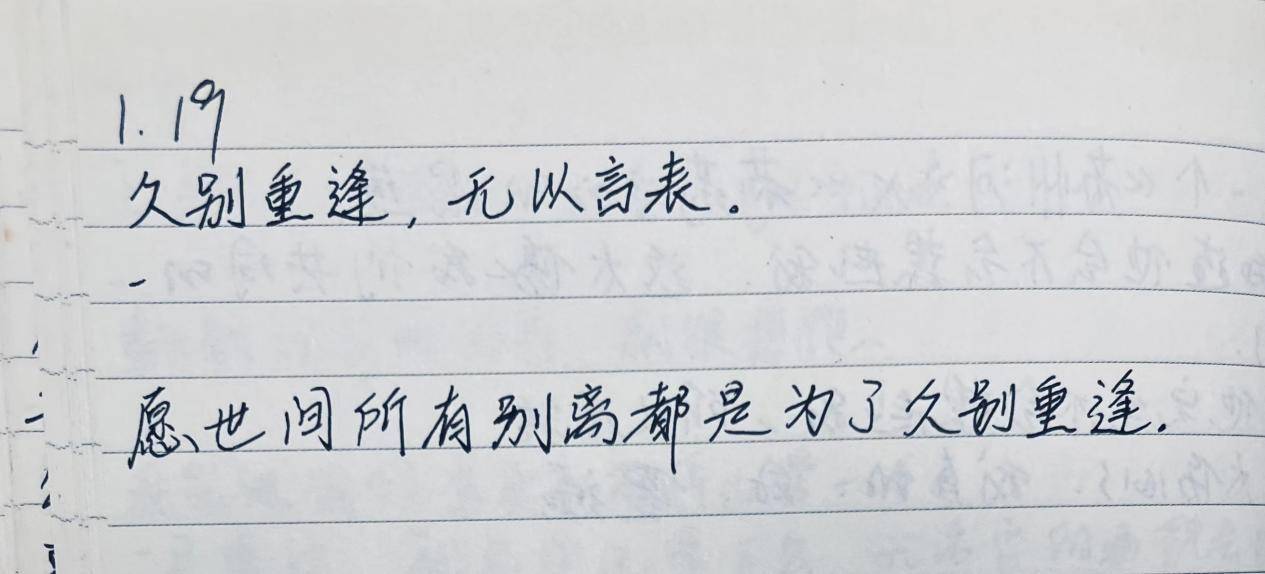 1.19
久别重逢,无以言表。
-
愿世间所有别离都是为了久别重逢.